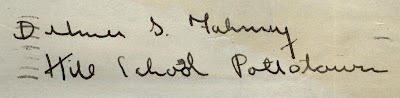 Delmer S. Fahrney
Hill School Pottstown